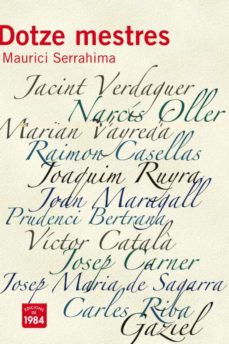 Dotze mestres
Maurici Serrahima
Jacint Verdaguer
Narcís Oller
Marian Vayreda
Raimon Casellas
Joaquim Ruyra
Joan Maragall
Prudenci Bertrana
Víctor Català
Josep Carner
Josep Maria de Sagarra
Carles Riba
Gaziel
EDICIONS DE
1984